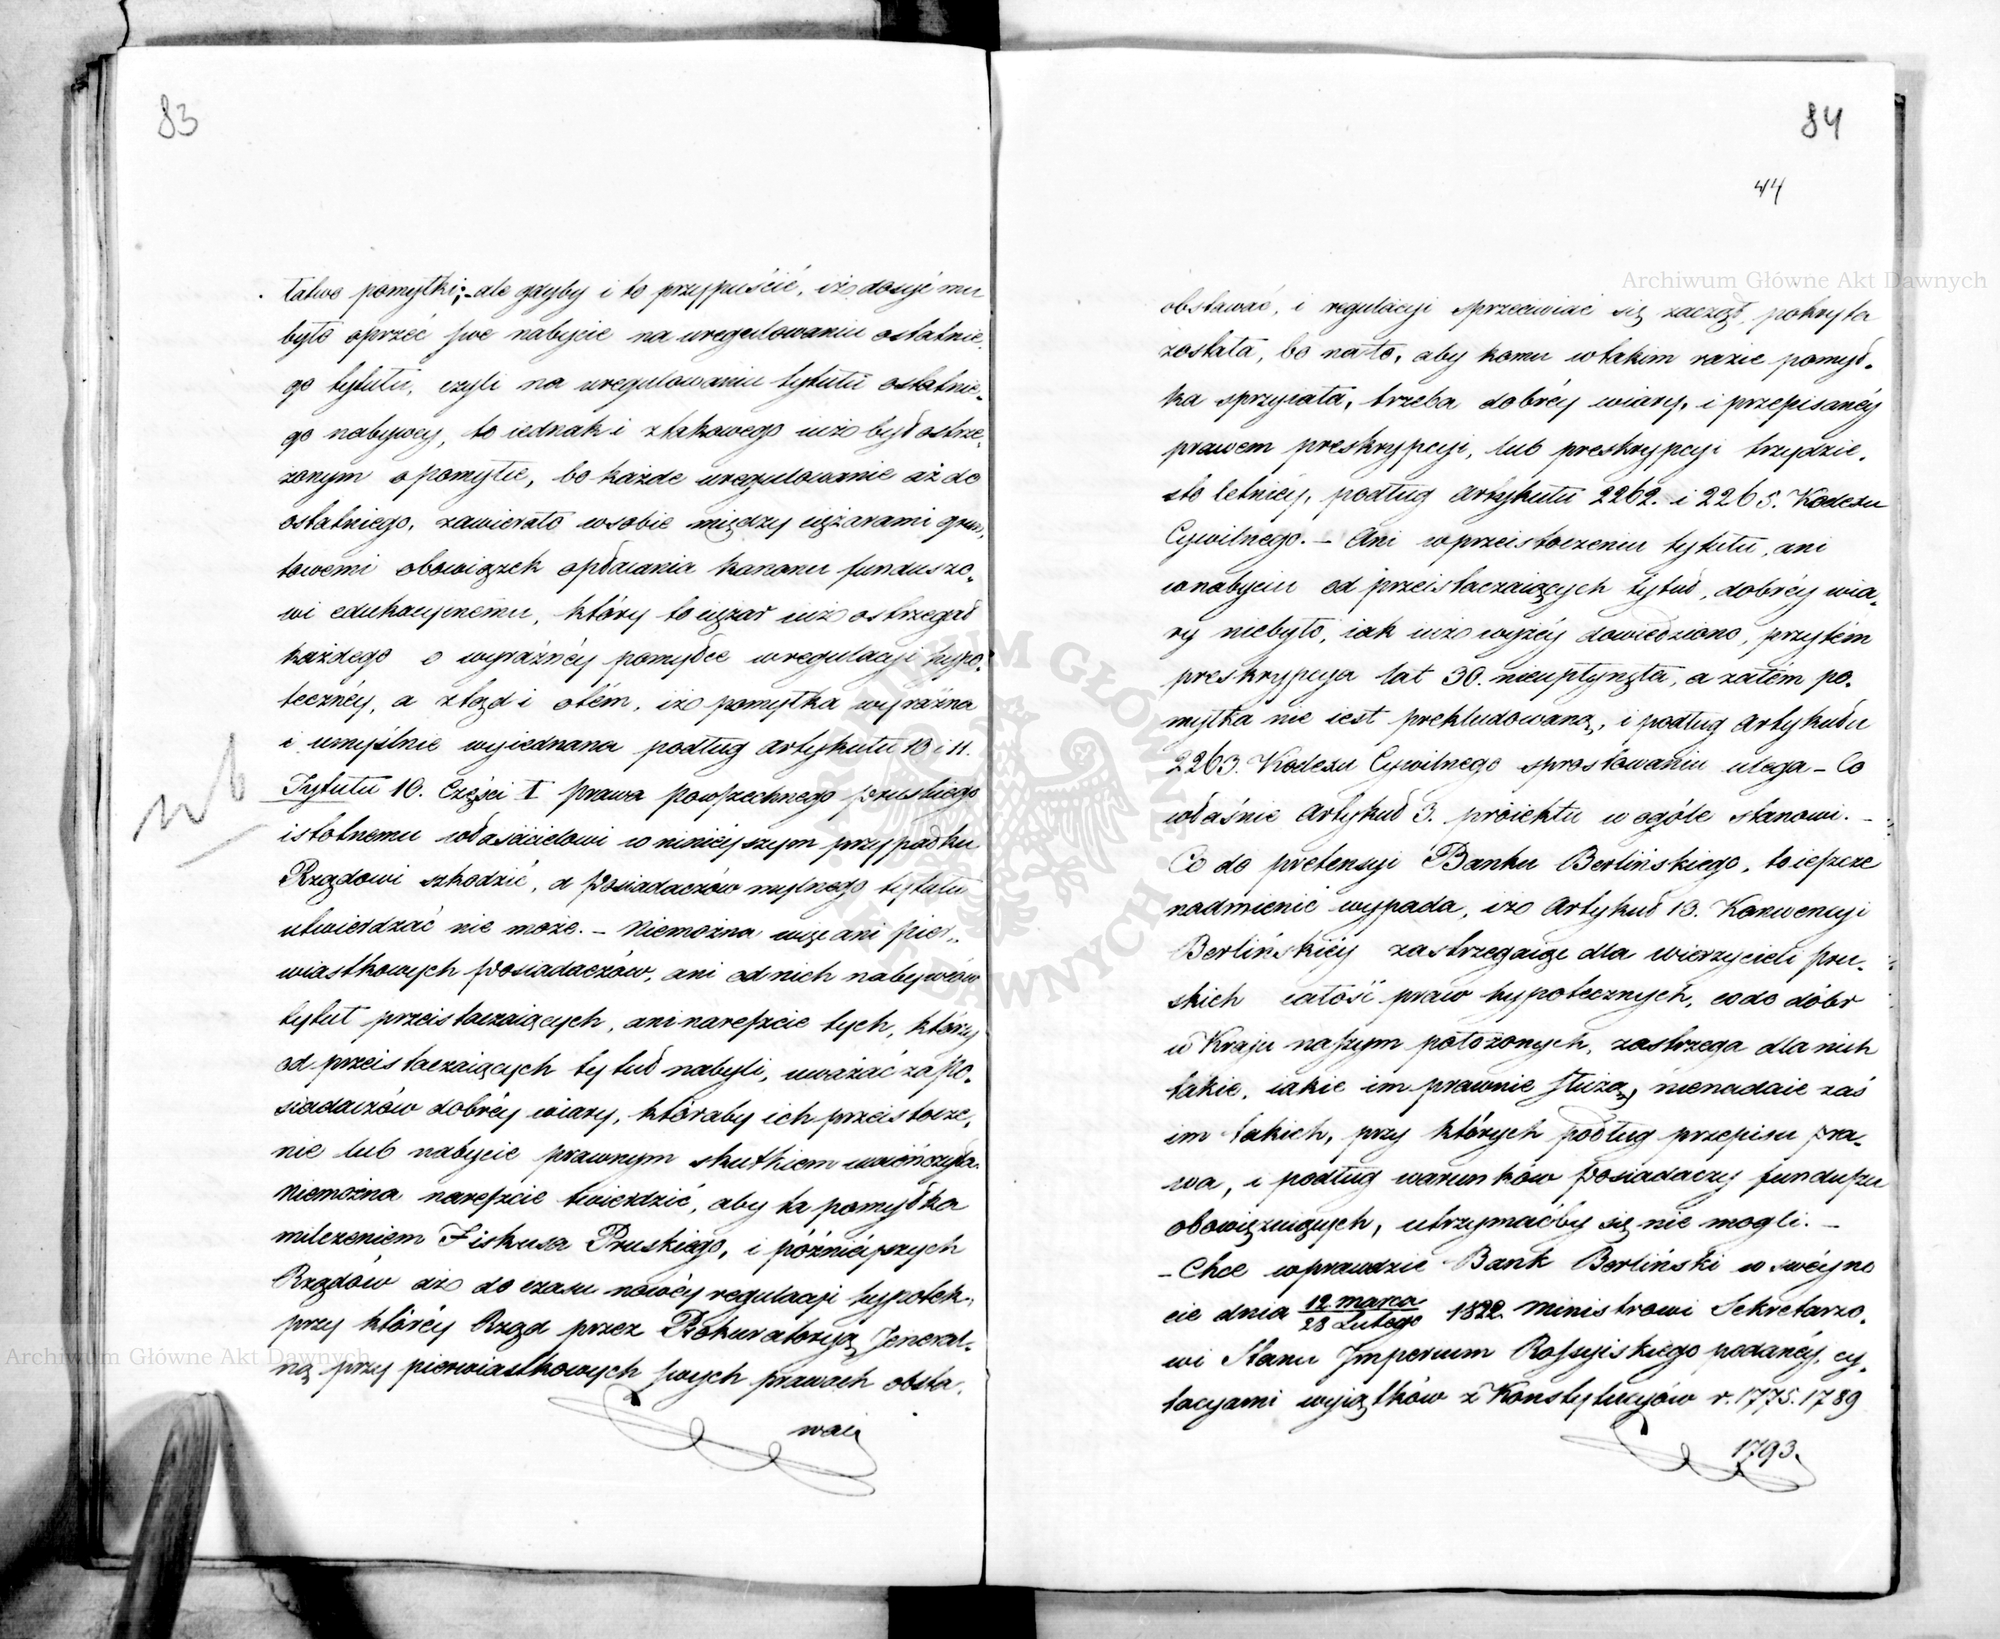 83
łatwo pomyłki; - ale gdyby i to przypuścić, iż dosyć mu
było oprzeć swe nabycie na uregulowaniu ostatnie-
go tytułu, czyli na uregulowaniu tytułu ostatnie-
go nabywcy, to iednak i z takowego iuż był ostrze-
żonym o pomyłce, bo każde uregulowanie aż do
ostatniego, zawierało w sobie między ciężarami grun-
towemi obowiązek opłacania kanonu fundusze-
wi edukacyinemu, który to ciężar iuż ostrzegał
każdego o wyraźnéy pomyłce w regulacyi hypo-
tecznéy, a ztąd i o tém, iż pomyłka wyraźna
i umyślnie wyiednana podług artykułu 10 i 11.
Tytułu 10. Części I prawa powszechnego pruskiego
istotnemu właścicielowi w ninieyszym przypadku
Rządowi szkodzić, a Posiadaczów mylnego tytułu
utwierdzać nie może. - Niemożna więc ani pier-
wiastkowych Posiadaczów, ani od nich nabywców
tytuł przeistaczaiących, ani nareszcie tych, którzy
od przeistaczaiących tytuł nabyli, uważać za po-
siadaczów dobréy wiary, któraby ich przeistocze-
nie lub nabycie prawnym skutkiem uwieńczyła.
Niemożna nareszcie twierdzić, aby ta pomyłka
milczeniem Fiskusa Pruskiego, i późnieyszych
Rządów aż do czasu nowéy regulacyi hypotek,
przy któréy Rząd przez Prokuratoryą Jeneral-
ną przy pierwiastkowych swych prawach obsta-
wać
84
44
obstawać, i regulacyi sprzeciwiać się zaczął, pokryta
została, bo na to, aby komu w takim razie pomył-
ka sprzyiała, trzeba dobréy wiary, i przepisanéy
prawem preskrypcyi, lub preskrypcyi trzydzie-
sto letniéy, podług Artykułu 2262. i 2265. Kodexu
Cywilnego. - Ani w przeistoczeniu tytułu, ani
w nabyciu od przeistaczaiących tytuł, dobréy wia-
ry niebyło, iak iuż wyżéy dowiedziono, przytém
preskrypcya lat 30. nieupłynęła, a zatém po-
myłka nie iest prekludowaną, i podług Artykułu
2263. Kodexu Cywilnego sprostowaniu ulega - Co
właśnie Artykuł 3. proiektu w ogóle stanowi. -
Co do pretensyi Banku Berlińskiego, to ieszcze
nadmienić wypada, iż Artykuł 13. Konwencyi
Berlińskiéy zastrzegaiąc dla wierzycieli pru-
skich całość praw hypotecznych, co do dóbr
w Kraju naszym położonych, zastrzega dla nich
takie, iakie im prawnie służą, nienadaie zaś
im takich, przy których podług przepisu pra-
wa, i podług warunków Posiadaczy funduszu
obowiązuiących, utrzymaćby się nie mogli. -
- Chce wprawdzie Bank Berliński w swéy no
cie dnia 12 marca / 28 Lutego 1822. Ministrowi Sekretarzo-
wi Stanu Imperium Rossyiskiego podanéy, cy-
tacyami wyiątków z Konstytucyów r. 1775. 1789
1793.